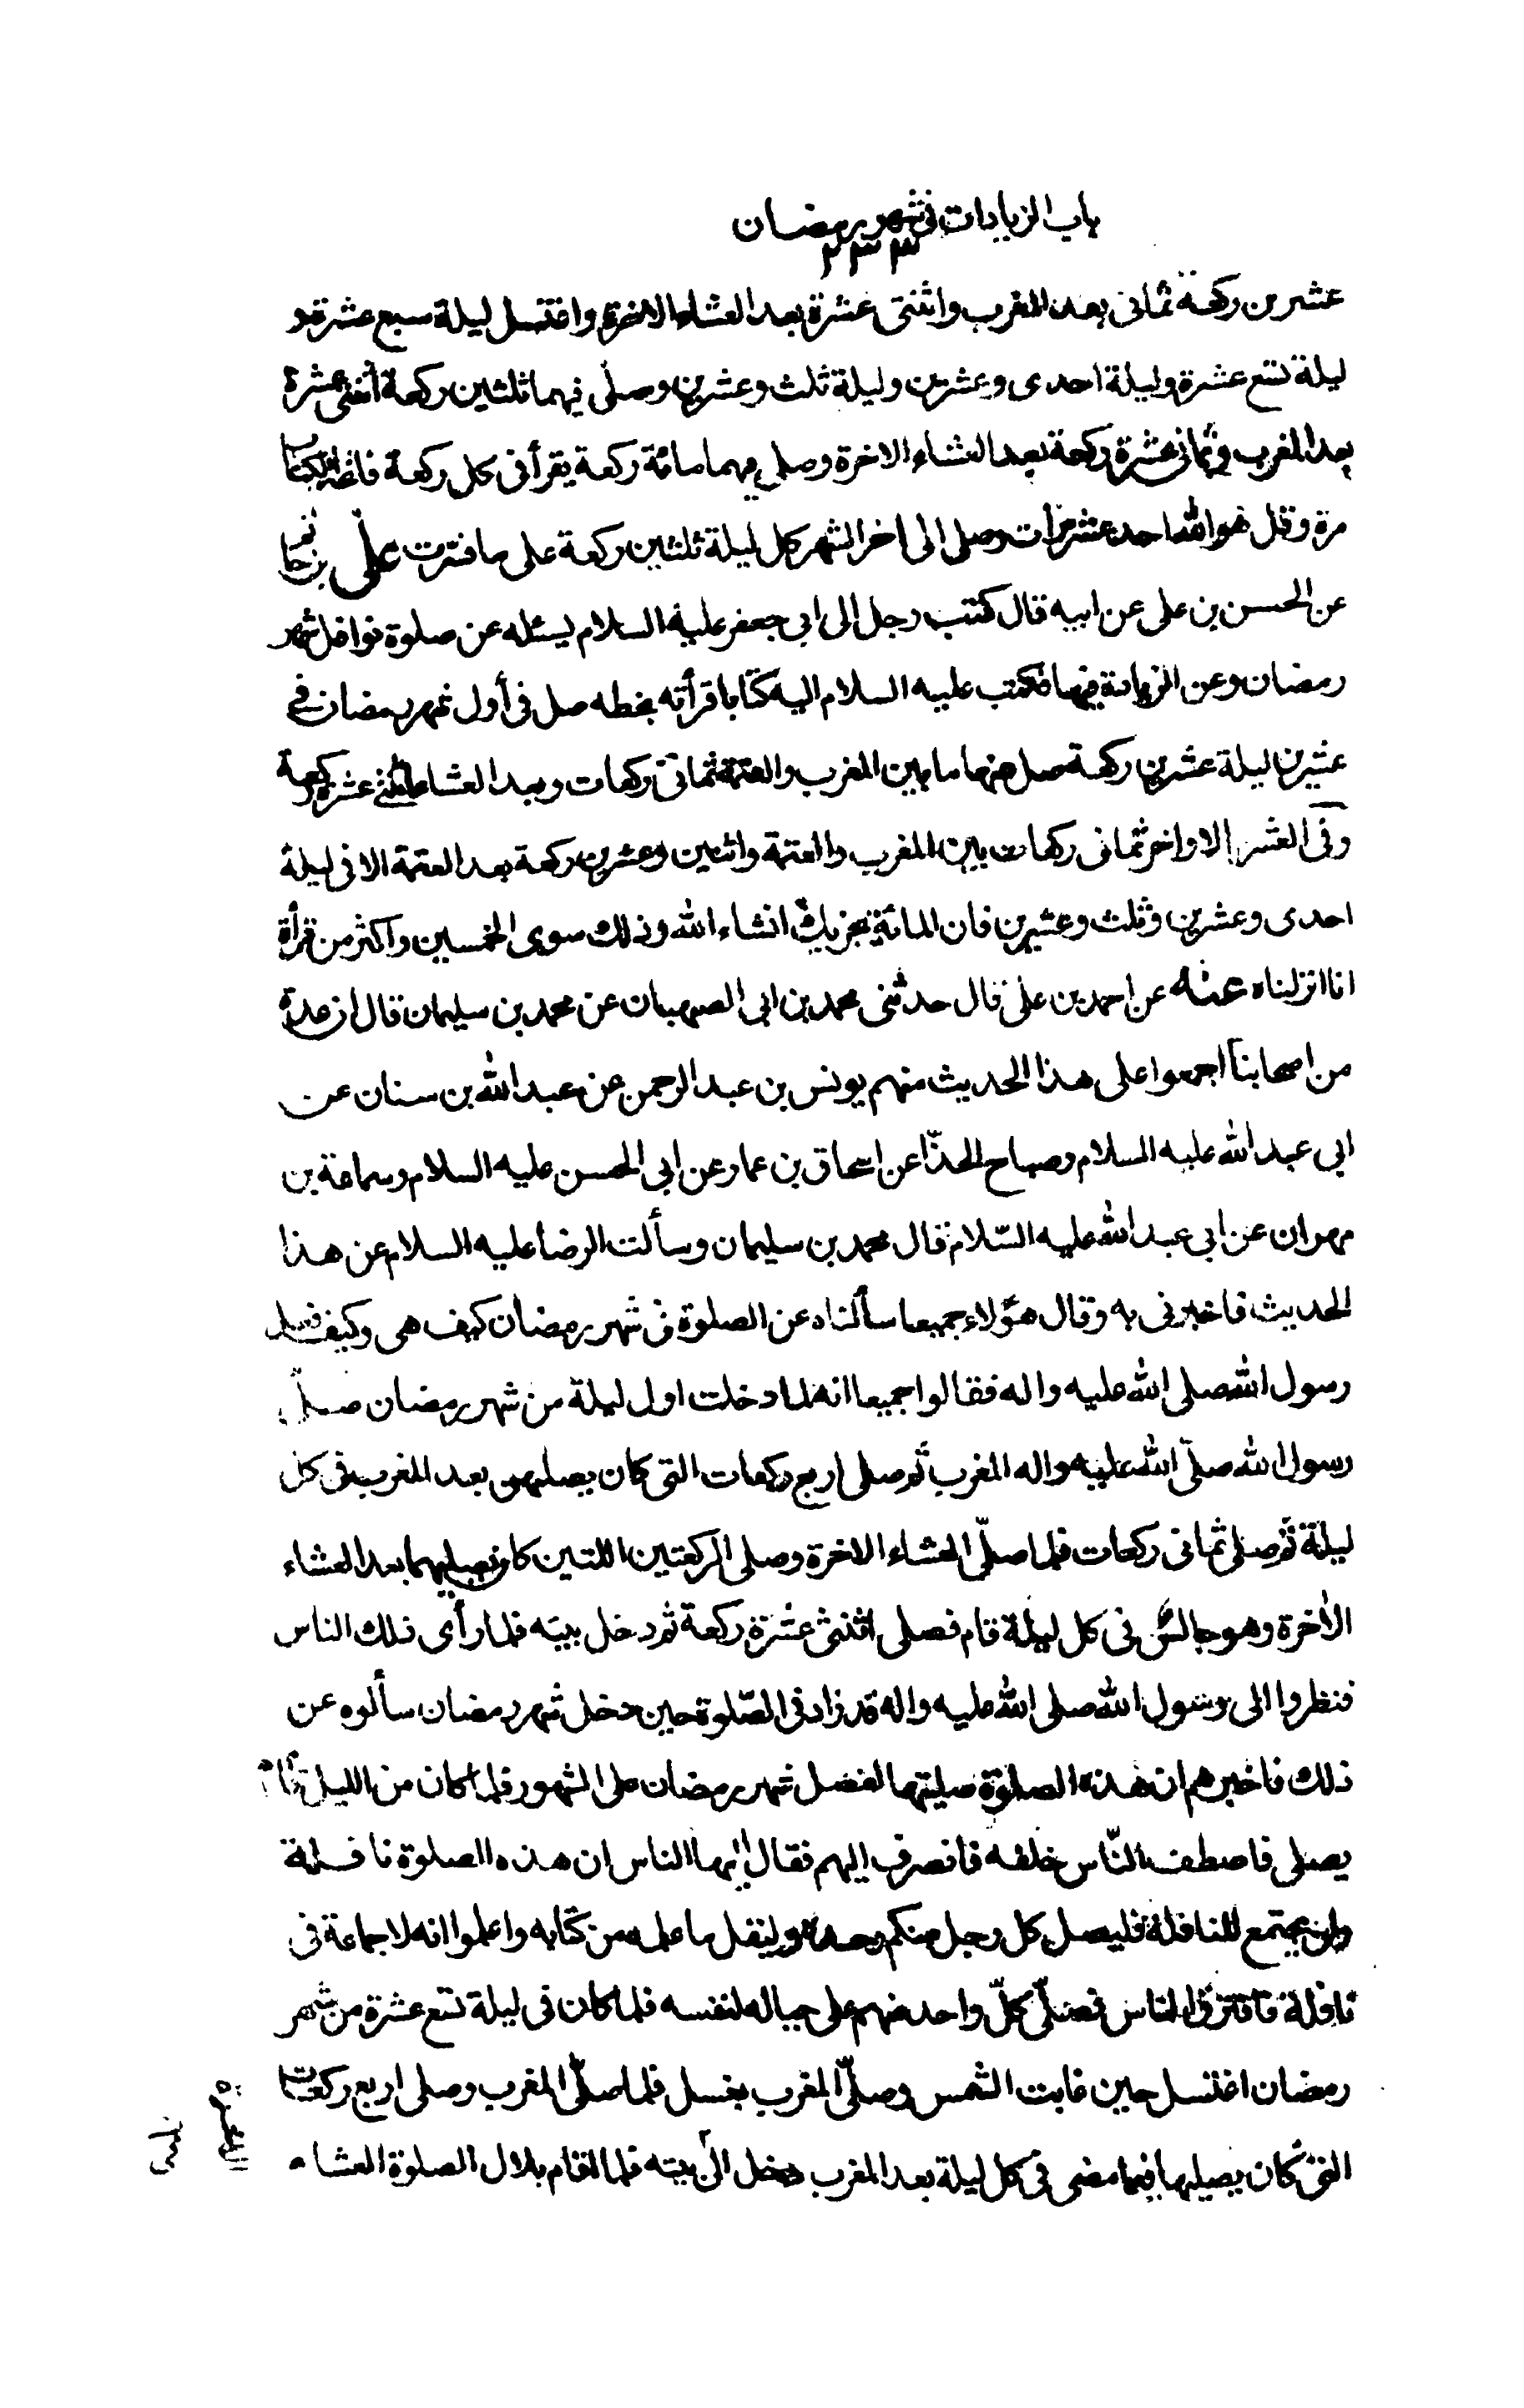 باب الزيادات فى شهر رمضان
٢٣٣
عشرين ركعة ثمانى بعد المغرب واثنتى عشرة بعد العشاء الاخرة واغتسل ليلة سبع عشرة و
ليلة تسع عشرة وليلة احدى وعشرين وليلة ثلث وعشرين وصلى فيهما ثلثين ركعة اثنتى عشرة
بعد المغرب وثمانى عشرة ركعة بعد العشاء الاخرة وصلى فيهما مائة ركعة يقرأ فى كل ركعة فاتحة الكتاب
مرة وقل هو الله احد عشر مرات وصلى الى اخر الشهر كل ليلة ثلثين ركعة على ما فسرت على بن حاتم
عن الحسن بن على عن ابيه قال كتب رجل الى ابى جعفر عليه السلام يسئله عن صلوة نوافل شهر
رمضان وعن الزيادة فيها فكتب عليه السلام اليه كتابا قرأته بخطه صل فى أول شهر رمضان فى
عشرين ليلة عشرين ركعة صل منها ما بين المغرب والعتمة ثمانى ركعات وبعد العشاء اثنتى عشرة ركعة
وفى العشر الاواخر ثمانى ركعات بين المغرب والعتمة واثنين وعشرين ركعة بعد العتمة الا فى ليلة
احدى وعشرين وثلث وعشرين فان المائة تجزيك انشاء الله وذلك سوى الخمسين واكثر من قرأة
انا انزلناه عنه عن احمد بن على قال حدثنى محمد بن ابى الصهبان عن محمد بن سليمان قال ان عدة
من اصحابنا اجمعوا على هذا الحديث منهم يونس بن عبد الرحمن عن عبد الله بن سنان عن
ابى عبد الله عليه السلام وصباح الحذّا عن اسحاق بن عمار عن ابى الحسن عليه السلام وسماعة بن
مهران عن ابى عبد الله عليه السّلام قال محمد بن سليمان وسألت الرضا عليه السلام عن هذا
الحديث فاخبرنى به وقال هؤلاء جميعا سألناه عن الصلوة فى شهر رمضان كيف هى وكيف فعل
رسول الله صلى الله عليه واله فقالوا جميعا انه لما دخلت اول ليلة من شهر رمضان صلّى
رسول الله صلّى الله عليه واله المغرب ثم صلى اربع ركعات التى كان يصليهن بعد المغرب فى كل
ليلة ثم صلى ثمانى ركعات فلما صلّى العشاء الاخرة وصلى الركعتين اللتين كان يصليهما بعد العشاء
الاخرة وهو جالس فى كل ليلة قام فصلى اثنتى عشرة ركعة ثم دخل بيته فلما رأى ذلك الناس
فنظروا الى رسول الله صلى الله عليه واله قد زاد فى الصّلوة حين دخل شهر رمضان سألوه عن
ذلك فاخبرهم ان هذه الصلوة صليتها لفضل شهر رمضان على الشهور فلما كان من الليل قام
يصلى فاصطف النّاس خلفه فانصرف اليهم فقال ايها الناس ان هذه الصلوة نافلة
ولن يجتمع للنافلة فليصل كل رجل منكم وحده وليقل ما علمه من كتابه واعلموا انه لا جماعة فى
نافلة فافترق الناس فصلّى كلّ واحد منهم على حياله لنفسه فلما كان فى ليلة تسع عشرة من شهر
رمضان اغتسل حين غابت الشمس وصلّى المغرب بغسل فلما صلّى المغرب وصلى اربع ركعات
التى كان يصليها فيما مضى فى كل ليلة بعد المغرب دخل الى بيته فلما اقام بلال الصلوة العشاء